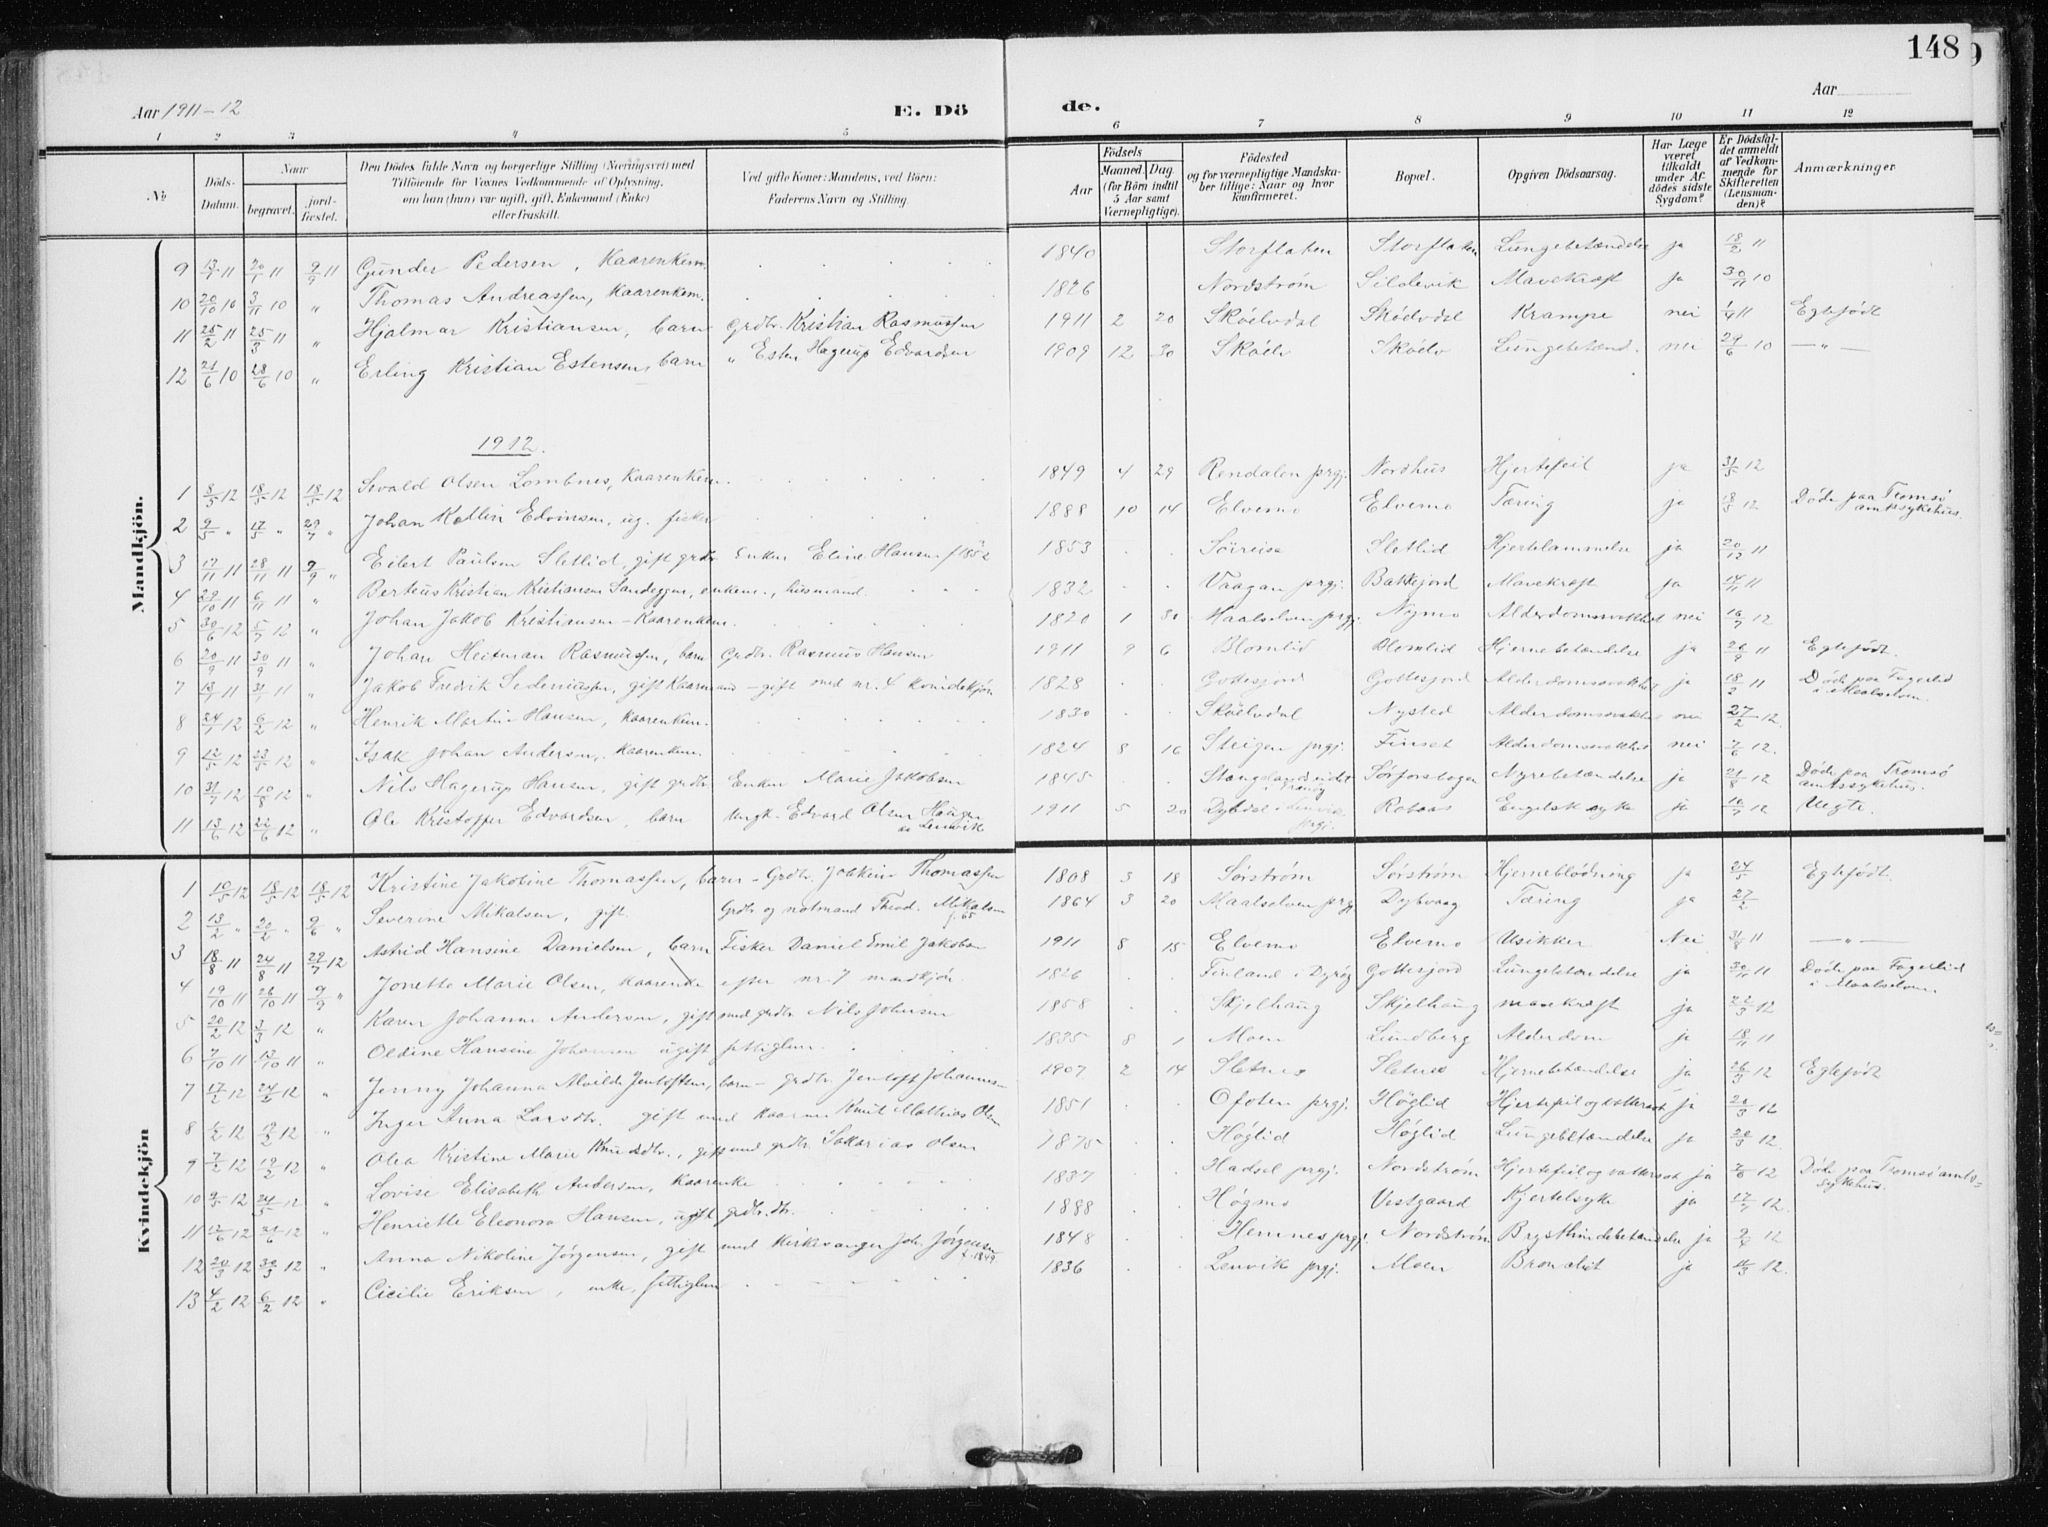 148
Aar 1911-12 E. Dö de. Aar
1 2 3 4 5 6 7 8 9 10 11 12
№ Döds-Datum. Naar begravet. jord-fæstet. Den Dödes fulde Navn og borgerlige Stilling (Næringsvei) med Tilföiende for Voxnes Vedkommende af Oplysning, om han (hun) var ugift, gift, Enkemand (Enke) eller fraskilt. Ved gifte Koner: Mandens, ved Börn: Faderens Navn og Stilling. Födsels Aar Maaned. Dag. (for Börn indtil 5 Aar samt Værnepligtige). Födested og for værnepligtige Mandskaber tillige: Naar og hvor konfirmeret. Bopæl. Opgiven Dödsaarsag. Har Læge været tilkaldt under Afdödes sidste Sygdom? Er Dödsfaldet anmeldt af Vedkommende for Skifteretten (Lensmanden)? Anmærkninger
Mandkjön.
9 13/7 11 20/1 11 9/9 11 Gunder Pedersen, Kaarenkem. 1840 Storflaten Storflaten Lungebetændelse ja 18/2 11
10 20/10 10 3/11 10 " Thomas Andreassen, Kaarenkem. 1826 Nordstrøm Sildevik Mavekræft ja 30/11 10
11 25/2 11 25/3 11 " Hjalmar Kristiansen, barn Grdbr. Kristian Rasmussen 1911 2 20 Skóelvdal Skóelvdal Krampe nei 1/4 11 Egtefødt
12 21/6 10 28/6 10 " Erling Kristian Estensen, barn " Esten Hagerup Edvardsen 1909 12 30 Skóelv Skóelv Lungebetænd. nei 29/6 10 —"—
1912.
1 8/5 12 18/5 12 18/5 12 Sivald Olsen Lombnes, Kaarenkem. 1849 4 29 Rendalen prgj. Nordhus Hjertefeil ja 31/5 12
2 9/5 " 17/5 " 29/7 " Johan Kotlin Edvinsen, ug. fisker 1888 10 14 Elvemo Elvemo Tæring ja 18/5 12 Døde paa Tromsö amtssykehus.
3 17/11 11 28/11 11 9/9 " Eilert Paulsen Sletlid, gift grdbr. Enken Eline Hansen f 1852 1853 Söireisa Sletlid Hjertelammelse ja 20/12 11
4 29/10 11 6/11 11 " Berteus Kristian Kristiansen Sandeggen, enkem., husmand. 1832 Vaagan prgj. Bakkejord Mavekræft ja 14/11 11
5 30/6 12 5/7 12 " Johan Jakob Kristiansen - Kaarenkem. 1820 1 30 Maalselven prgj. Nymo Alderdomssvakhet nei 16/7 12
6 20/9 11 30/9 11 " Johan Heitman Rasmussen, barn Grdbr. Rasmus Hansen 1911 9 6 Blomlid Blomlid Hjernebetændelse ja 26/9 11 Egtefødt.
7 13/1 11 31/1 11 " Jakob Fredrik Sedeniussen, gift Kaarmand - gift med nr. 4 kvindekjön 1828 Gottesjord Gottesjord Alderdomssvakhet ja 18/2 11 Døde paa Fagerlid i Maalselven.
8 24/1 12 6/2 12 " Henrik Martin Hansen, Kaarenkem. 1830 Skóelvdal Nysted Alderdomssvakhet nei 27/2 12
9 12/5 12 23/5 12 " Isak Johan Andersen, Kaarenkem. 1824 8 16 Steigen prgj. Finset Alderdomssvakhet nei 7/6 12.
10 31/7 12 10/8 12 " Nils Hagerup Hansen, gift grdbr. Enken Marie Jakobsen 1845 Stangelandseidet i Tranøy Sørforsbogen Nyrebetændelse ja 21/8 12 Døde paa Tromsö amtssykehus.
11 13/6 12 22/6 12 " Ole Kristoffer Edvardsen, barn Ungk. Edvard Olsen Haugen av Lenvik 1911 5 20 Dybdal i Lenvik prgj. Rotaas Engelsk syke ja 10/7 12 Uegte.
Kvindekjön
1 10/5 12 18/5 12 18/5 12 Kristine Jakobine Thomassen, barn - Grdbr. Jakkim Thomassen 1808 3 18 Sørstrøm Sørstrøm Hjerneblödning ja 24/5 Egtefødt.
2 13/2 " 20/2 " 9/6 " Severine Mikalsen, gift. Grdbr. og notmand Theod. Mikalsen f. 65 1864 3 20 Maalselven prgj Dybvaag Tæring ja 27/2
3 18/8 11 24/8 11 29/7 12 Astrid Hansine Danielsen, barn Fisker Daniel Emil Jakobsen 1911 8 15 Elvemo Elvemo Usikker Nei 31/8 11 —"—
4 19/10 11 26/10 11 9/9 " Jonette Marie Olsen, Kaarenke efter nr. 7 mandkjön. 1826 Finland i Dyröy Gottesjord Lungebetændelse ja 30/10 11 Døde paa Fagerlid i Maalselven.
5 20/2 12 3/3 12 " Karen Johanne Andersen, gift med grdbr. Nils Johnsen 1858 Skjelhaug Skjelhaug mavekræft ja 22/3 12
6 7/10 11 13/10 11 " Oldine Hansine Johansen ugift fattiglem. 1835 8 1 Moen Lundberg Alderdom ja 18/11 11
7 17/2 12 24/2 12 " Jenny Johanna Alvilde Jentoftsen, barn - grdbr. Jentoft Johannes- 1907 2 14 Sletnes Sletnes Hjernebetændelse ja 26/3 12 Egtefødt
8 12 12 " Inger Anna Larsdtr. gift med Kaarm. Knut Mathias Olsen 1851 Ofoten prgj. Höglid Hjertefeil og vattersot ja 20/3 12
9 7/2 12 19/2 12 " Olea Kristine Marie Knudsdtr., gift med grdbr. Sakarias Olsen 1875 Höglid Höglid Lungebetændelse ja 20/3 12.
10 12 24/5 12 " Lovise Elisabeth Andersen, Kaarenke 1837 Hadsel prgj. Nordstrøm Hjertefeil og vattersot ja 7/6 12 Døde paa Tromsö amts-sykehus.
11 12 12 " Henriette Eleonora Hansen, ugift grdbr. dtr. 1888 Högmo Vestgaard Kjertelsyke ja 17/7 12.
12 20/3 12 30/3 12 " Anna Nikoline Jörgensen, gift med Kirkesanger Joh. Jörgensen f. 1849 1848 Hemnes prgj. Nordstrøm Brysthindebetændelse ja 9/4 12
13 4/2 12 6/2 12 " Cicilie Eriksen, enke, fattiglem 1836 Lenvik prgj. Moen Bronchit ja 12.